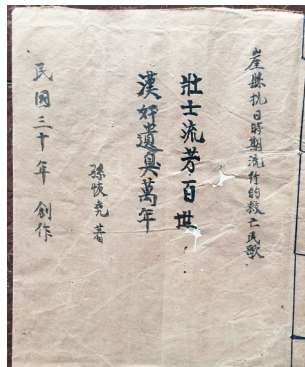 崖縣抗日時期流行的救亡民歌
壯士流芳百世
漢奸遺臭萬年
孫悛堯著
民國三十年創作